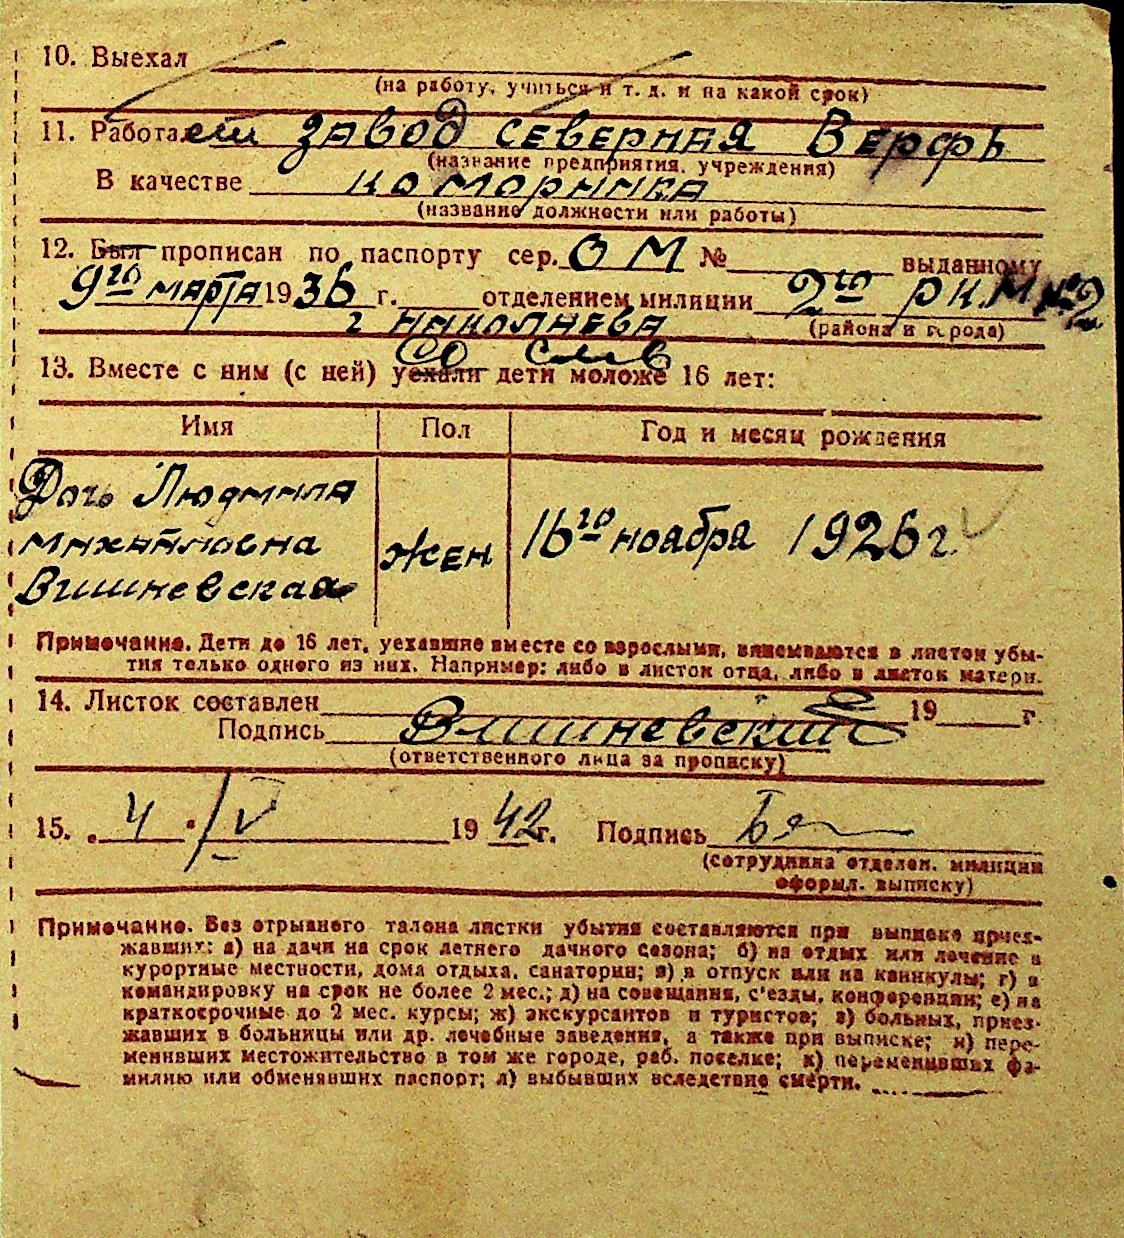 10. Выехал
(на работу, учиться и т. д. и на какой срок)
11. Работал ет завод северная Верфь
(название предприятия, учреждения)
В качестве
(название должности или работы)
12. Был прописан по паспорту сер. О М № выданному
9го марта 1936 г. отделением милиции 2го РК.М №2
г Николаева (района и города)
со слов
13. Вместе с ним (с ней) уехали дети моложе 16 лет:
Имя Пол Год и месяц рождения
Дочь Людмила
Михайловна жен 16го ноября 1926 г.
Вишневская
Примечание. Дети до 16 лет, уехавшие вместе со взрослыми, вписываются в листок убы-
тия только одного из них. Например: либо в листок отца, либо в листок матери.
14. Листок составлен 19 г.
Подпись Вишневский
(ответственного лица за прописку)
15. „ 4 " IV 1942 г. Подпись
(сотрудника отделен. милиции
оформл. выписку)
Примечание. Без отрывного талона листки убытия составляются при выписке приез-
жавших: а) на дачи на срок летнего дачного сезона; б) на отдых или лечение в
курортные местности, дома отдыха, санатории; в) в отпуск или на каникулы; г) в
командировку на срок не более 2 мес.; д) на совещания, с'езды, конференции; е) на
краткосрочные до 2 мес. курсы; ж) экскурсантов и туристов; з) больных, приез-
жавших в больницы или др. лечебные заведения, а также при выписке; и) пере-
менивших местожительство в том же городе, раб. поселке; к) переменивших фа-
милию или обменявших паспорт; л) выбывших вследствие смерти.